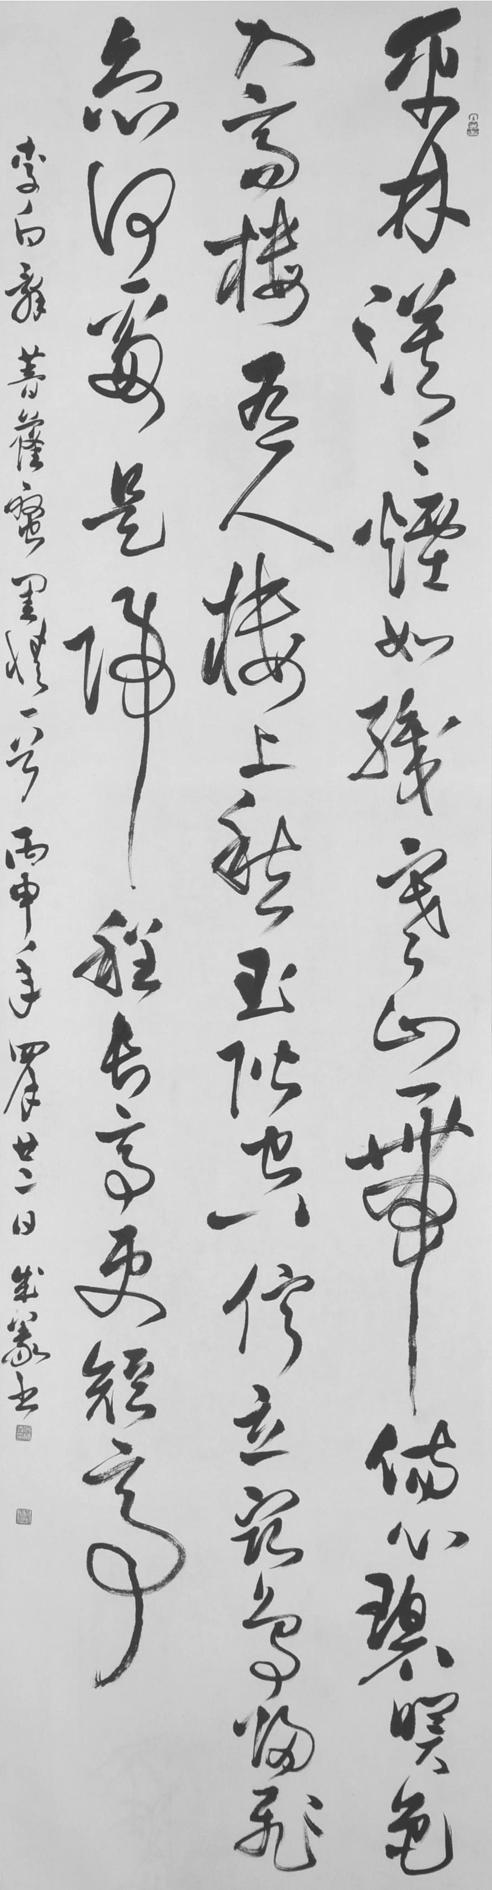 平林漠〻煙如織寒山一帶傷心碧暝色
入高樓有人樓上愁玉階空佇立宿鳥歸飛
急何處是歸程長亭更短亭
李白辭菩薩蠻 一首 丙申年四月廿二日 書